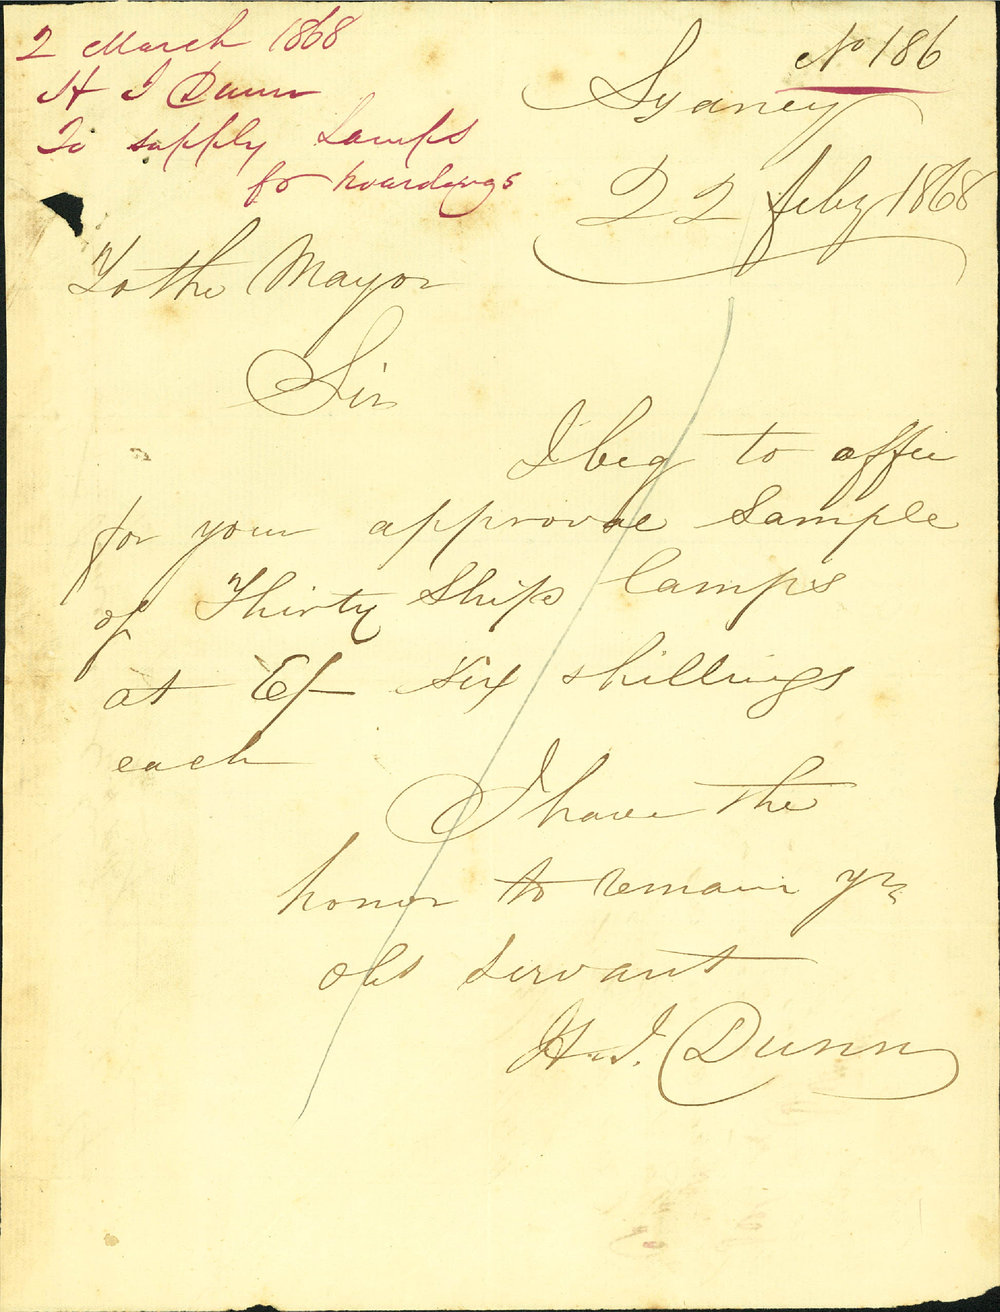 2 March 1868
H J Dunn
To supply Lamps
for hoardings
No 186
Sydney
22 feby 1868
To the Mayor
Sir
I beg to offer
for your approval Sample
of Thirty Ships lamps
at 6/- Six shillings
each
I have the
honor to remain yr
obt servant
H. J. Dunn